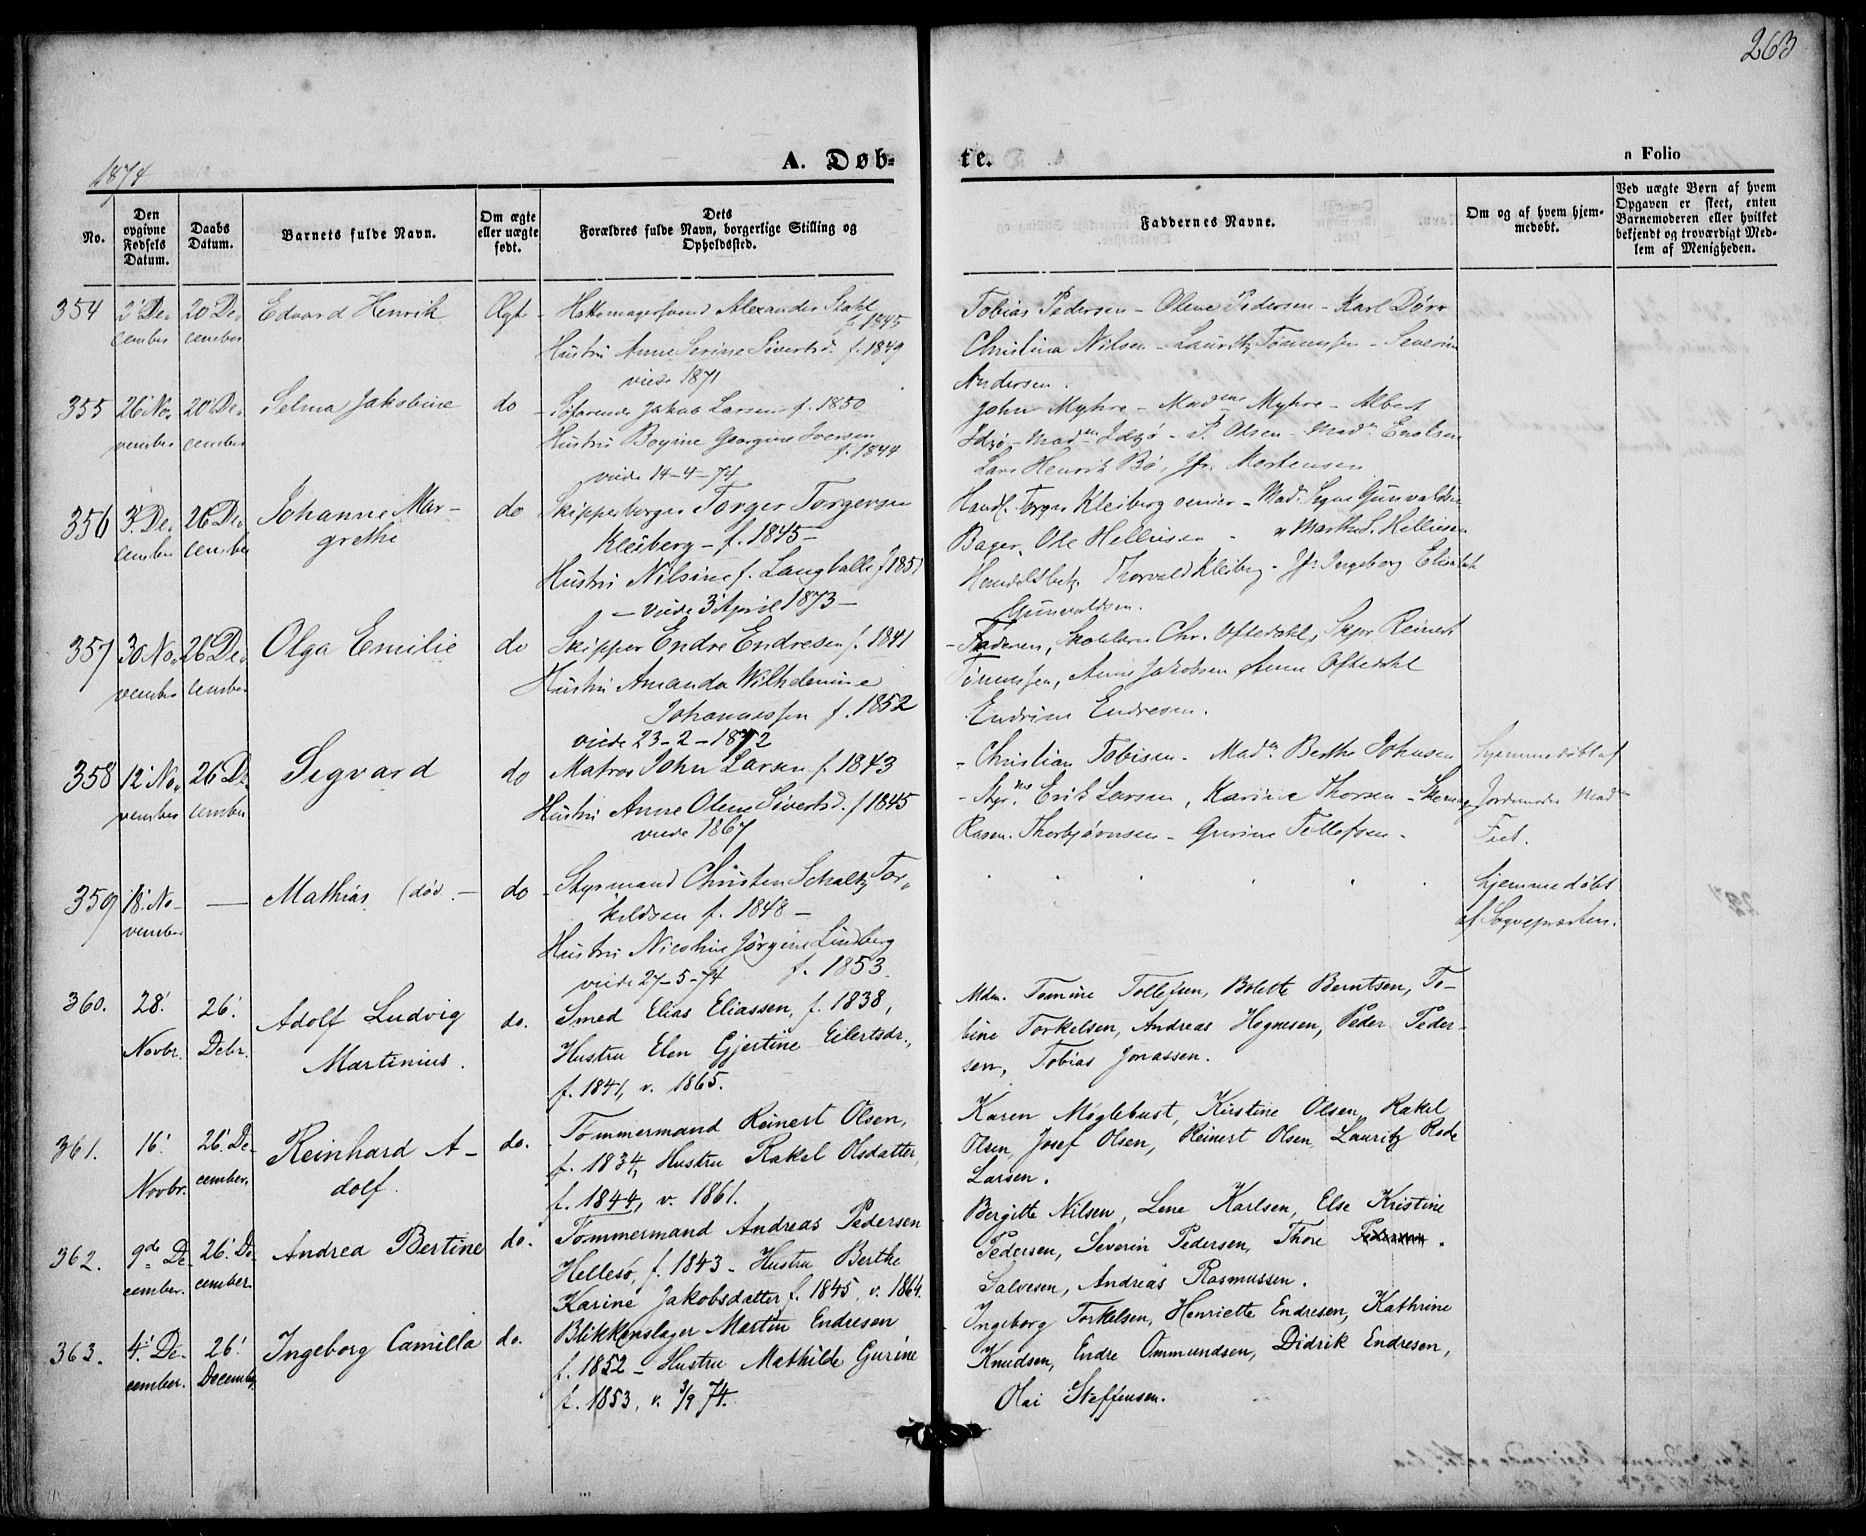 263
1874
A. Døb-
te.
a Folio
No.
Den opgivne Fødsels Datum.
Daabs Datum.
Barnets fulde Navn.
Om ægte eller uægte født.
Dets Forældres fulde Navn, borgerlige Stilling og Opholdssted.
Faddernes Navne.
Om og af hvem hjemmedøbt.
Ved uægte Børn af hvem Opgaven er skeet, enten Barnemoderen eller hvilket bekjendt og troværdigt Medlem af Menigheden.
354 2' De- 20 De- Edvard Henrik Ægt - Hattemagersvend Alexander Stahl
cember cember f. 1845
Hustru Anne Serine Sivertsd. f. 1849
viede 1871
Tobias Pedersen - Olene Pedersen - Karl Dörr
Christina Nilsen - Lauritz Tönnessen - Severin
Andersen.
355 26' No- 20' De- Selma Jakobine do - Söfarende Jakob Larsen f. 1850
vember cember Hustru Georgine Iversen
f. 1844
viede 14-4-74
John Myhre - Madme Myhre - Albert
Idsø - Madm Idsø - P. Olsen - Madm
Lars Henrik Bö, Jfr. Mortensen
356 3' De- 26 De- Johanne Mar- do Skipperborger Torger Torgersen
cember cember grethe Kleiberg - f. 1845 -
Hustru Nilsine f. Langballe f 1851
- viede 3 April 1873 -
Handl. Torger Kleiberg senior - Mad. Signe Gunvaldsen
Bager. Ole Helliesen - " Marthe S. Helliesen
Handelsbetj. Thorvald Kleiberg - Jfr. Ingeborg Elisabet
Gunvaldsen.
357 30 No- 26 De- Olga Emilie do - Skipper Endre Endresen f. 1841
vember cember Hustru Amanda Wilhelmine
Johannessen f. 1852
viede 23-2-1872
- Faderen, Chr. Oftedahl, Skpr Reinert
Tönnessen, Anne Jakobsen Anne Oftedahl
Endrine Endresen.
358 12' No- 26 De- Segvard do Matros John Larsen f. 1843
vember cember Hustru Anne Olene Sivertsd. f 1845
viede 1867
- Christian Tobisen - Madm Berthe Johnsen
- Erik Larsen, Karine Thorsen -
Rasm. Thorbjörnsen - Gurine Tollefsen -
hjemmedöbt af
Jordemoder Madm
359 18' No- — Mathias (död - do - Styrmand Christen Schultz Tor-
vember kildsen f. 1848 -
Hustru Nicoline Jörgine Lindberg
viede 27-5-74 f. 1853.
hjemmedöbt
af Sognepræsten.
360. 28' 26' Adolf Ludvig do. Smed Elias Eliassen, f. 1838,
Novbr. Debr. Martinius. Hustru Elen Gjertine Eilertsdr.,
f. 1841, v. 1865.
Mdm. Tomine Tollefsen, Bolette Berntsen, To-
bine Torkelsen, Andreas Hognesen, Peder Peder-
sen, Tobias Jonassen.
361. 16' 26' De- Reinhard A- do. Tömmermand Reinert Olsen,
Novbr. cember. dolf. f. 1834, Hustru Rakel Olsdatter,
f. 1844, v. 1861.
Karen Möglebust, Kirstine Olsen, Rakel
Olsen, Josef Olsen, Reinert Olsen, Lauritz Rode
Larsen.
362. 9de De- 26' De- Andrea Bertine do. Tömmermand Andreas Pedersen
cember. cember. Hellesö, f. 1843 - Hustru Berthe
Karine Jakobsdatter f. 1845, v. 1864.
Bergitte Nilsen, Lene Karlsen, Else Kristine
Pedersen, Severin Pedersen, Thore
Salvesen, Andreas Rasmussen.
363. 4' De- 26' Ingeborg Camilla do. Blikkenslager Martin Endresen
cember. December. f. 1852 - Hustru Mathilde Gurine
f. 1853, v. 3/9 74.
Ingeborg Torkelsen, Henriette Endresen, Kathrine
Knudsen, Endre Ommundsen, Didrik Endresen,
Olai Steffensen.